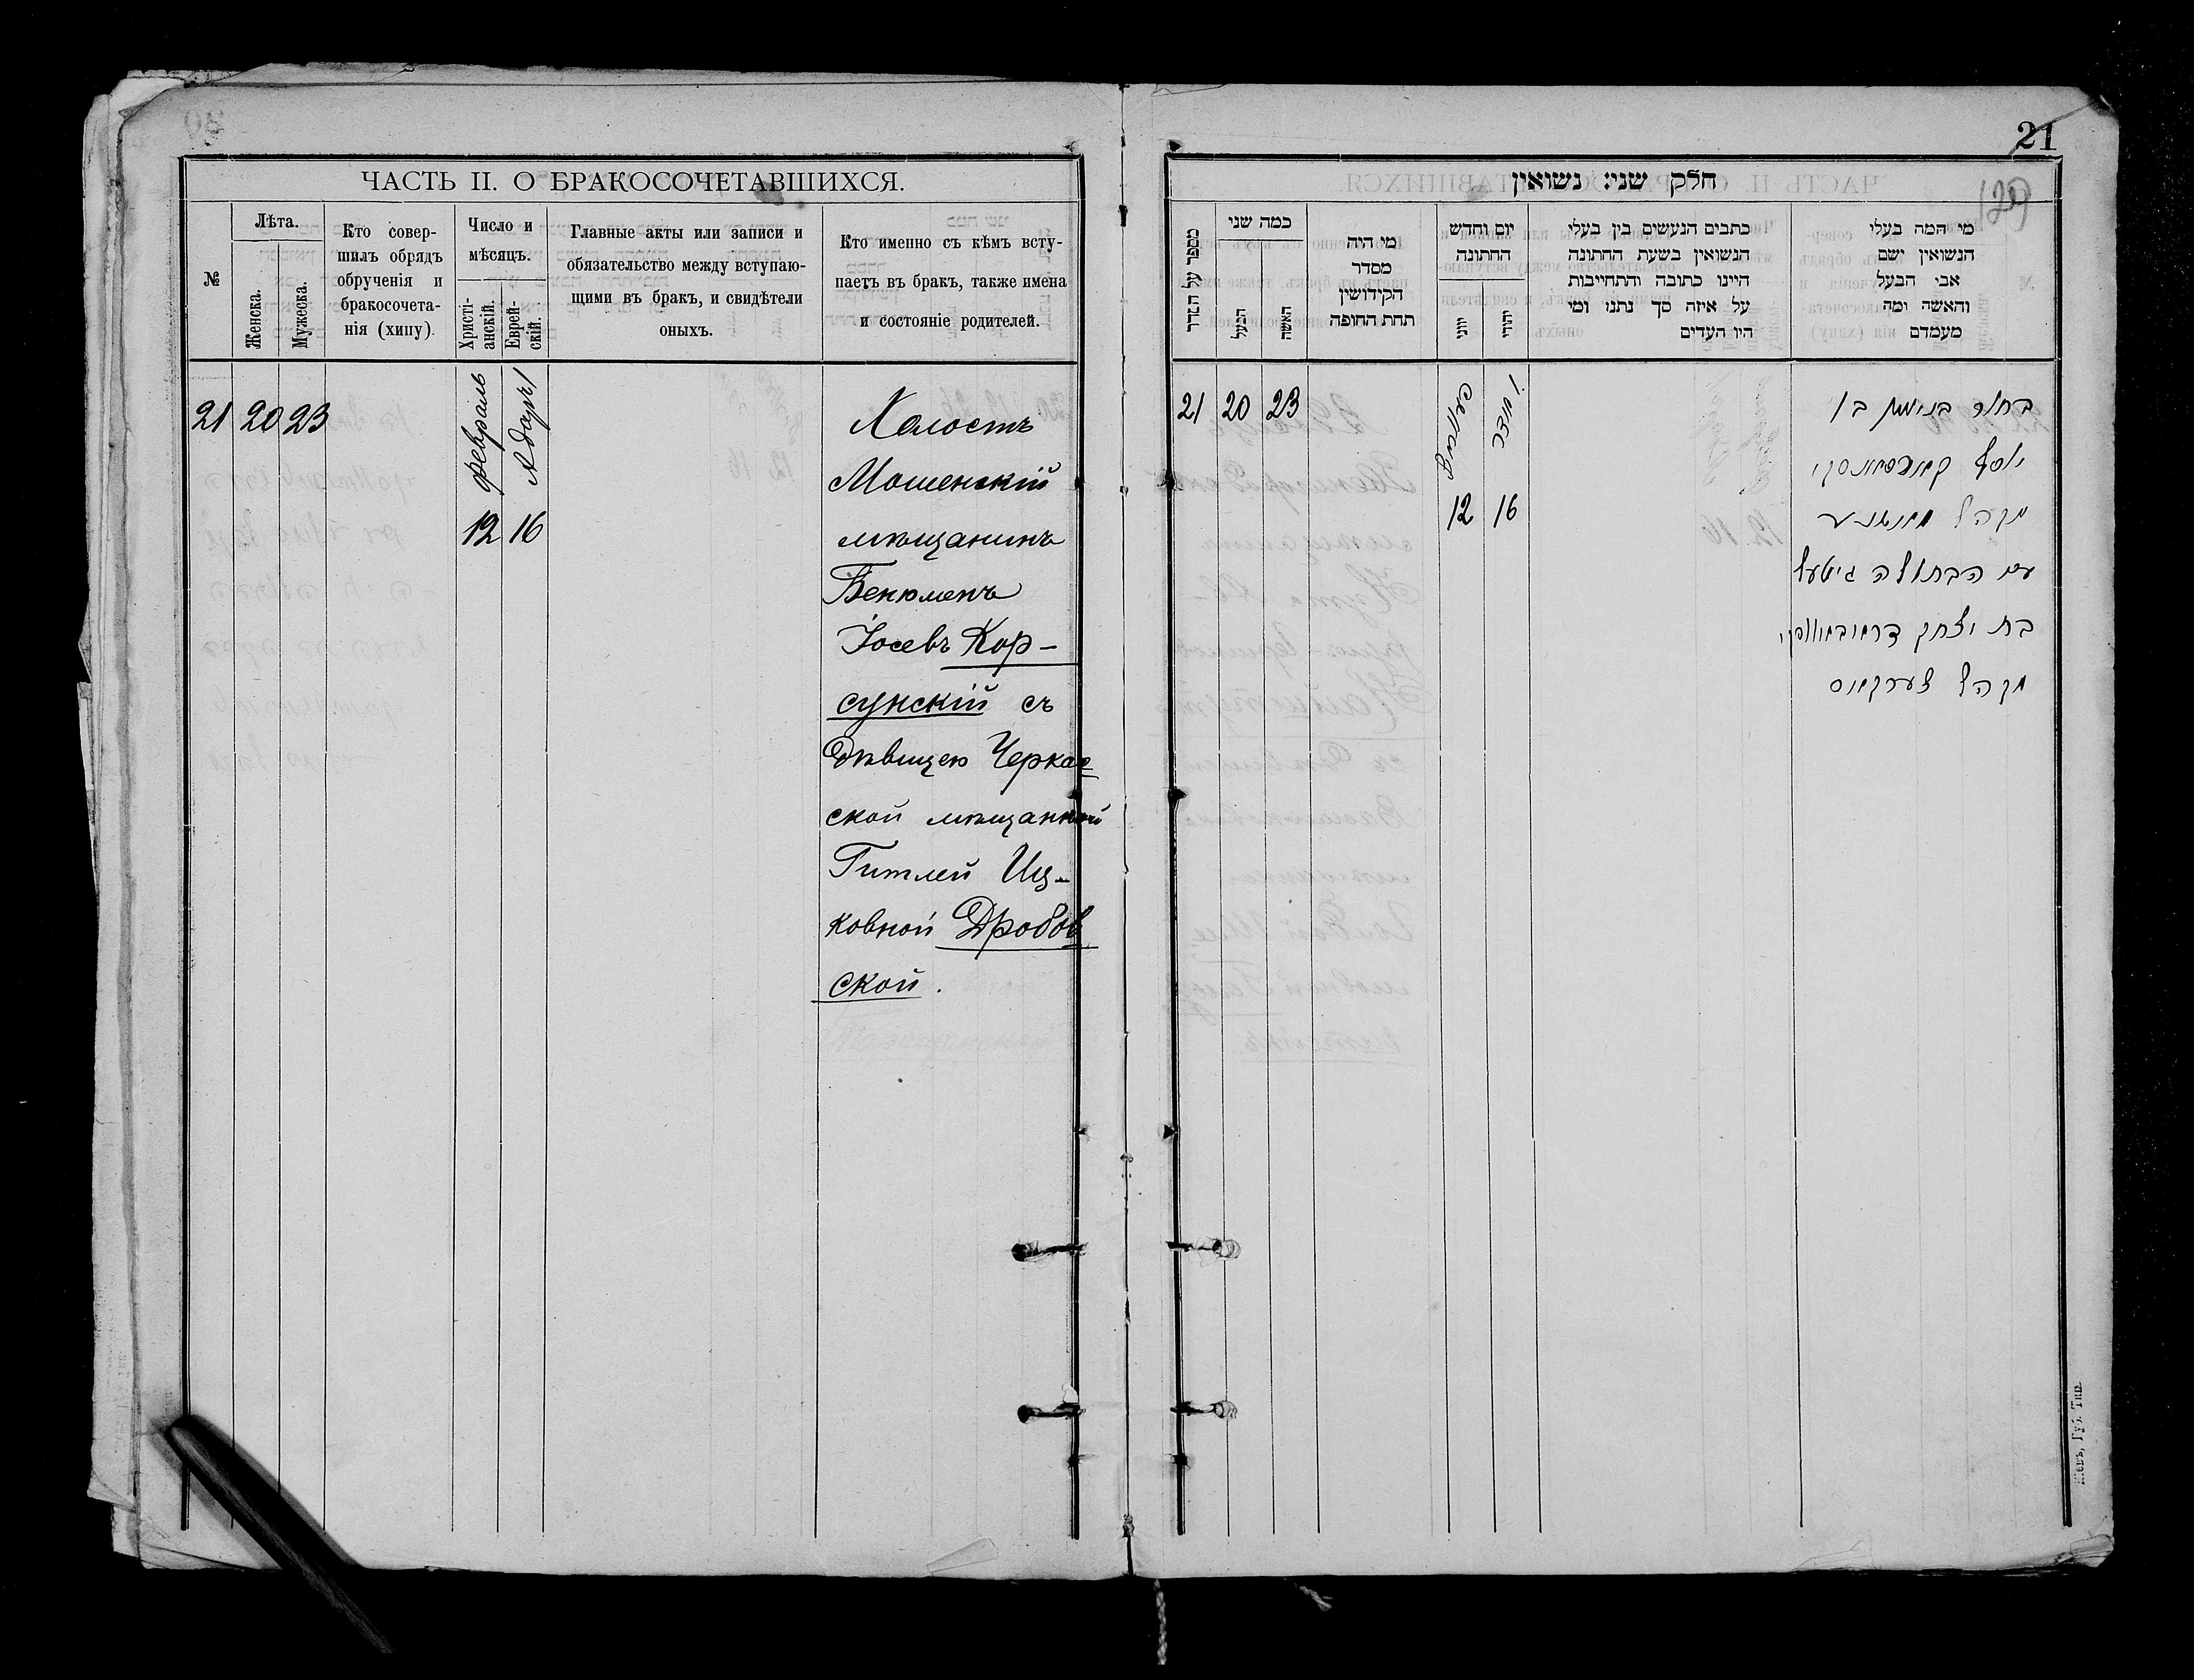 ЧАСТЬ II. О БРАКОСОЧЕТАВШИХСЯ.
№
Лѣта.
Женска.
Мужеска.
Кто совер-
шилъ обрядъ
обрученія и
бракосочета-
нія (хипу).
Число и
мѣсяцъ.
Христі-
анскій.
Еврей-
скій.
Главные акты или записи и
обязательство между вступаю-
щими въ бракъ, и свидѣтели
оныхъ.
Кто именно съ кѣмъ всту-
паетъ въ бракъ, также имена
и состояніе родителей.
21 20 23
февраль
Адаръ 1
12 16
Холостъ
Мошенскій
мѣщанинъ
Бенюменъ
Іосевъ Кор-
сунскій съ
дѣвицею Черкас
ской мѣщанкой
Гитлей Иц-
ковной Дробов
ской.
21
120
חלק שני: נשואין
מספר על הסדר
כמה שני
הבעל
האשה
מי היה
מסדר
הקידושין
תחת החופה
יום וחדש
החתונה
יווני
יהודי
כתבים הנעשים בין בעלי
הנשואין בשעת החתונה
היינו כתובה והתחייבות
על איזה סך נתנו ומי
היו העדים
מי המה בעלי
הנשואין ישם
אבי הבעל
והאשה ומה
מעמדם
21 20 23
12 16
בחור בנימין בן
יוסף קארסונסקי
מקהל
עם הבתולה גיטעל
בת יצחק דראבאווסקי
מקהל צערקאס
Кіевъ, Губ. Тип.